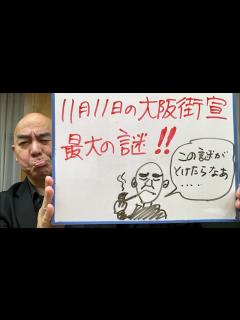 11月11日の大阪街宣
最大の謎!!
この謎が
とけたらなあ
.....